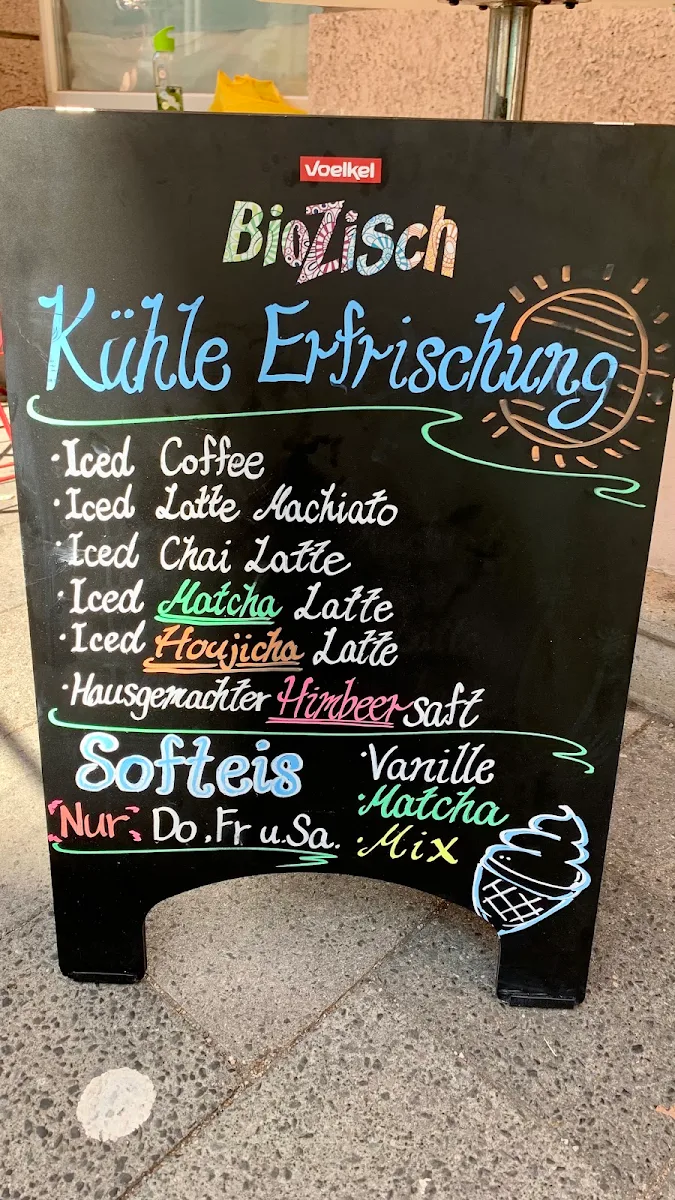 Voelkel
BioZisch
Kühle Erfrischung
·Iced Coffee
·Iced Latte Machiato
·Iced Chai Latte
·Iced Matcha Latte
·Iced Houjicha Latte
·Hausgemachter Himbeersaft
Softeis
Nur Do, Fr u. Sa.
·Vanille
·Matcha
·Mix